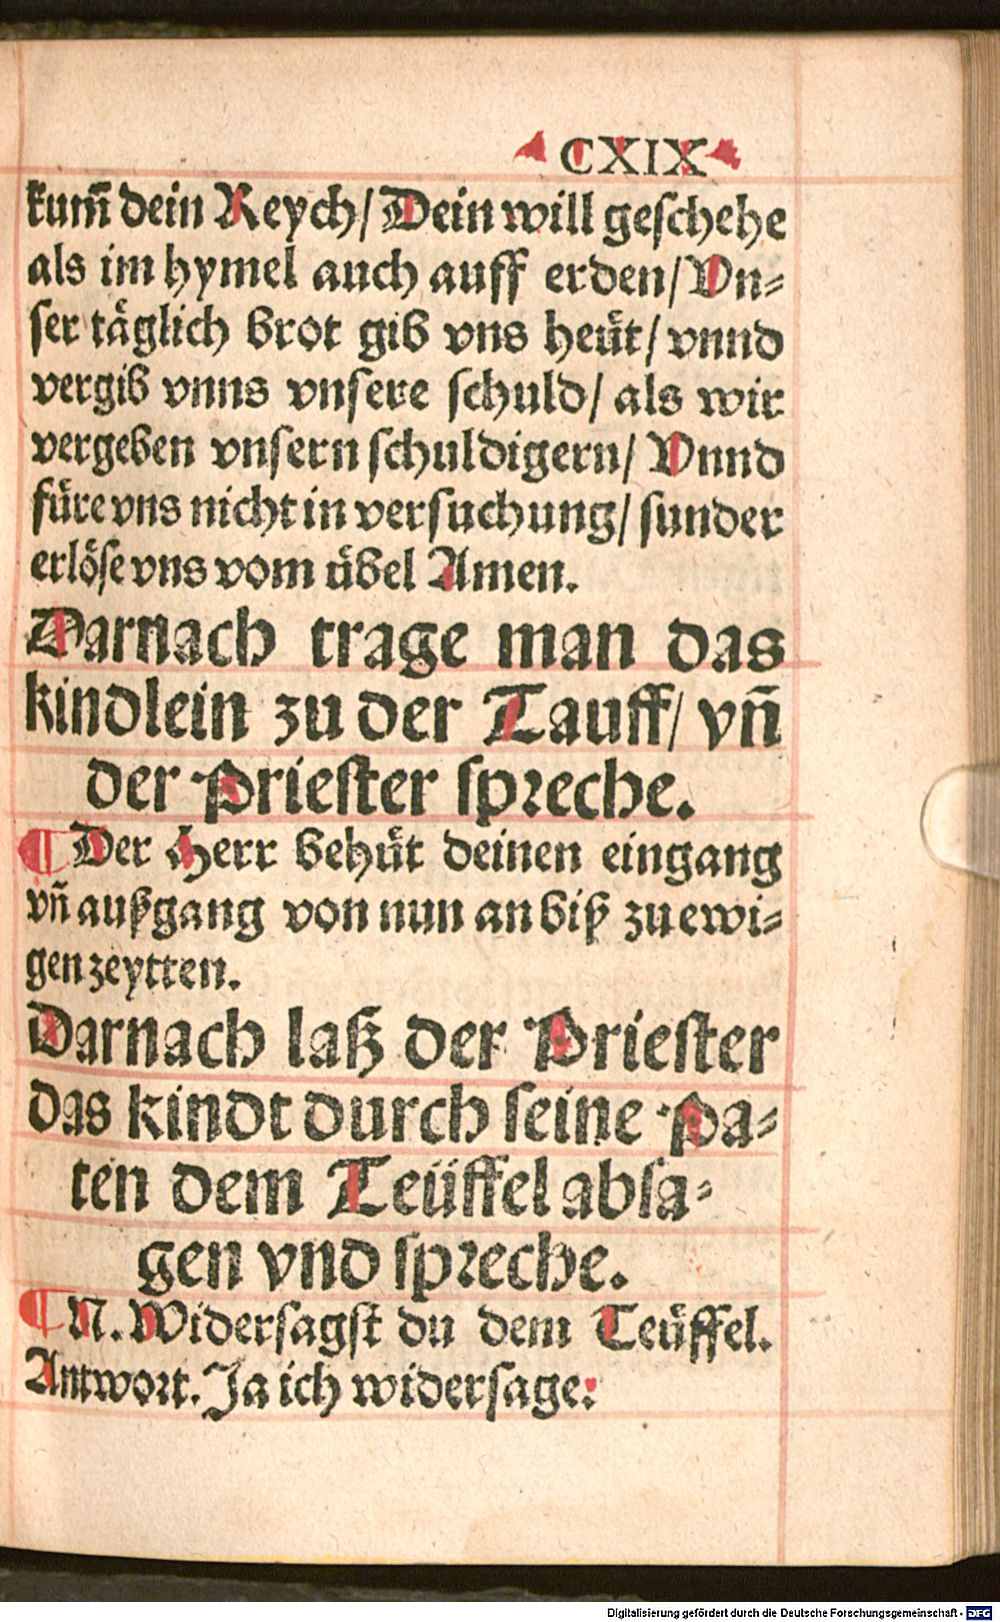 CXIX
kum̃ dein Reych/ Dein will geschehe
als im hymel auch auff erden/ Vn⸗
ser täglich brot gib vns heüt/ vnnd
vergib vnns vnsere schuld/ als wir
vergeben vnsern schuldigern/ Vnnd
füre vns nicht in versuchung/ sunder
erlöse vns vom übel Amen.
Darnach trage man das
kindlein zu der Tauff/ vñ
der Priester spreche.
¶ Der Herr behüt deinen eingang
vñ außgang von nun an biß zu ewi⸗
gen zeytten.
Darnach laß der Priester
das kindt durch seine Pa⸗
ten dem Teüffel absa⸗
gen vnd spreche.
¶ N. Widersagst du dem Teüffel.
Antwort. Ja ich widersage.
Digitalisierung gefördert durch die Deutsche Forschungsgemeinschaft - DFG